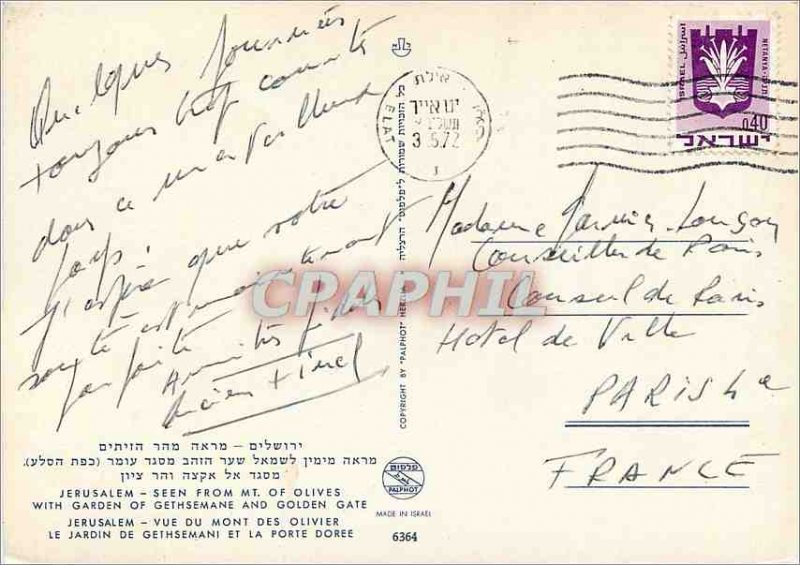 Quelques journées
toujours trop courtes
dans ce merveilleux
pays.
J'espère que votre
santé est maintenant
parfaite
Amitiés
אילת
ELAT
3.5.72
ISRAEL
NETANYA
0.40
ישראל
Madame
Conseiller de Paris
Conseil de Paris
Hotel de Ville
PARIS 4e
FRANCE
CPARHIL
COPYRIGHT BY "PALPHOT" HERZLIA
כל הזכויות שמורות ל"פלפוט" הרצליה
ירושלים – מראה מהר הזיתים
מראה מימין לשמאל שער הזהב מסגד עומר (כפת הסלע).
מסגד אל אקצה והר ציון
JERUSALEM – SEEN FROM MT. OF OLIVES
WITH GARDEN OF GETHSEMANE AND GOLDEN GATE
JERUSALEM – VUE DU MONT DES OLIVIER
LE JARDIN DE GETHSEMANI ET LA PORTE DOREE
פלפוט
PALPHOT
MADE IN ISRAEL
6364